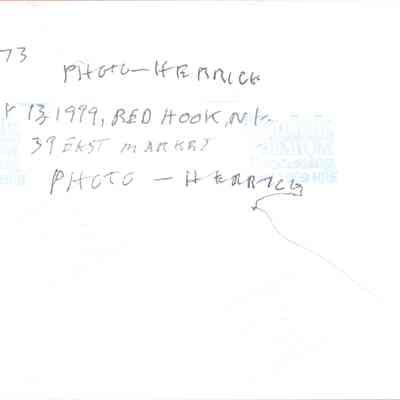 73
PHOTO — HERRICK
13, 1999, RED HOOK, N.Y.
39 EAST MARKET
PHOTO — HERRICK